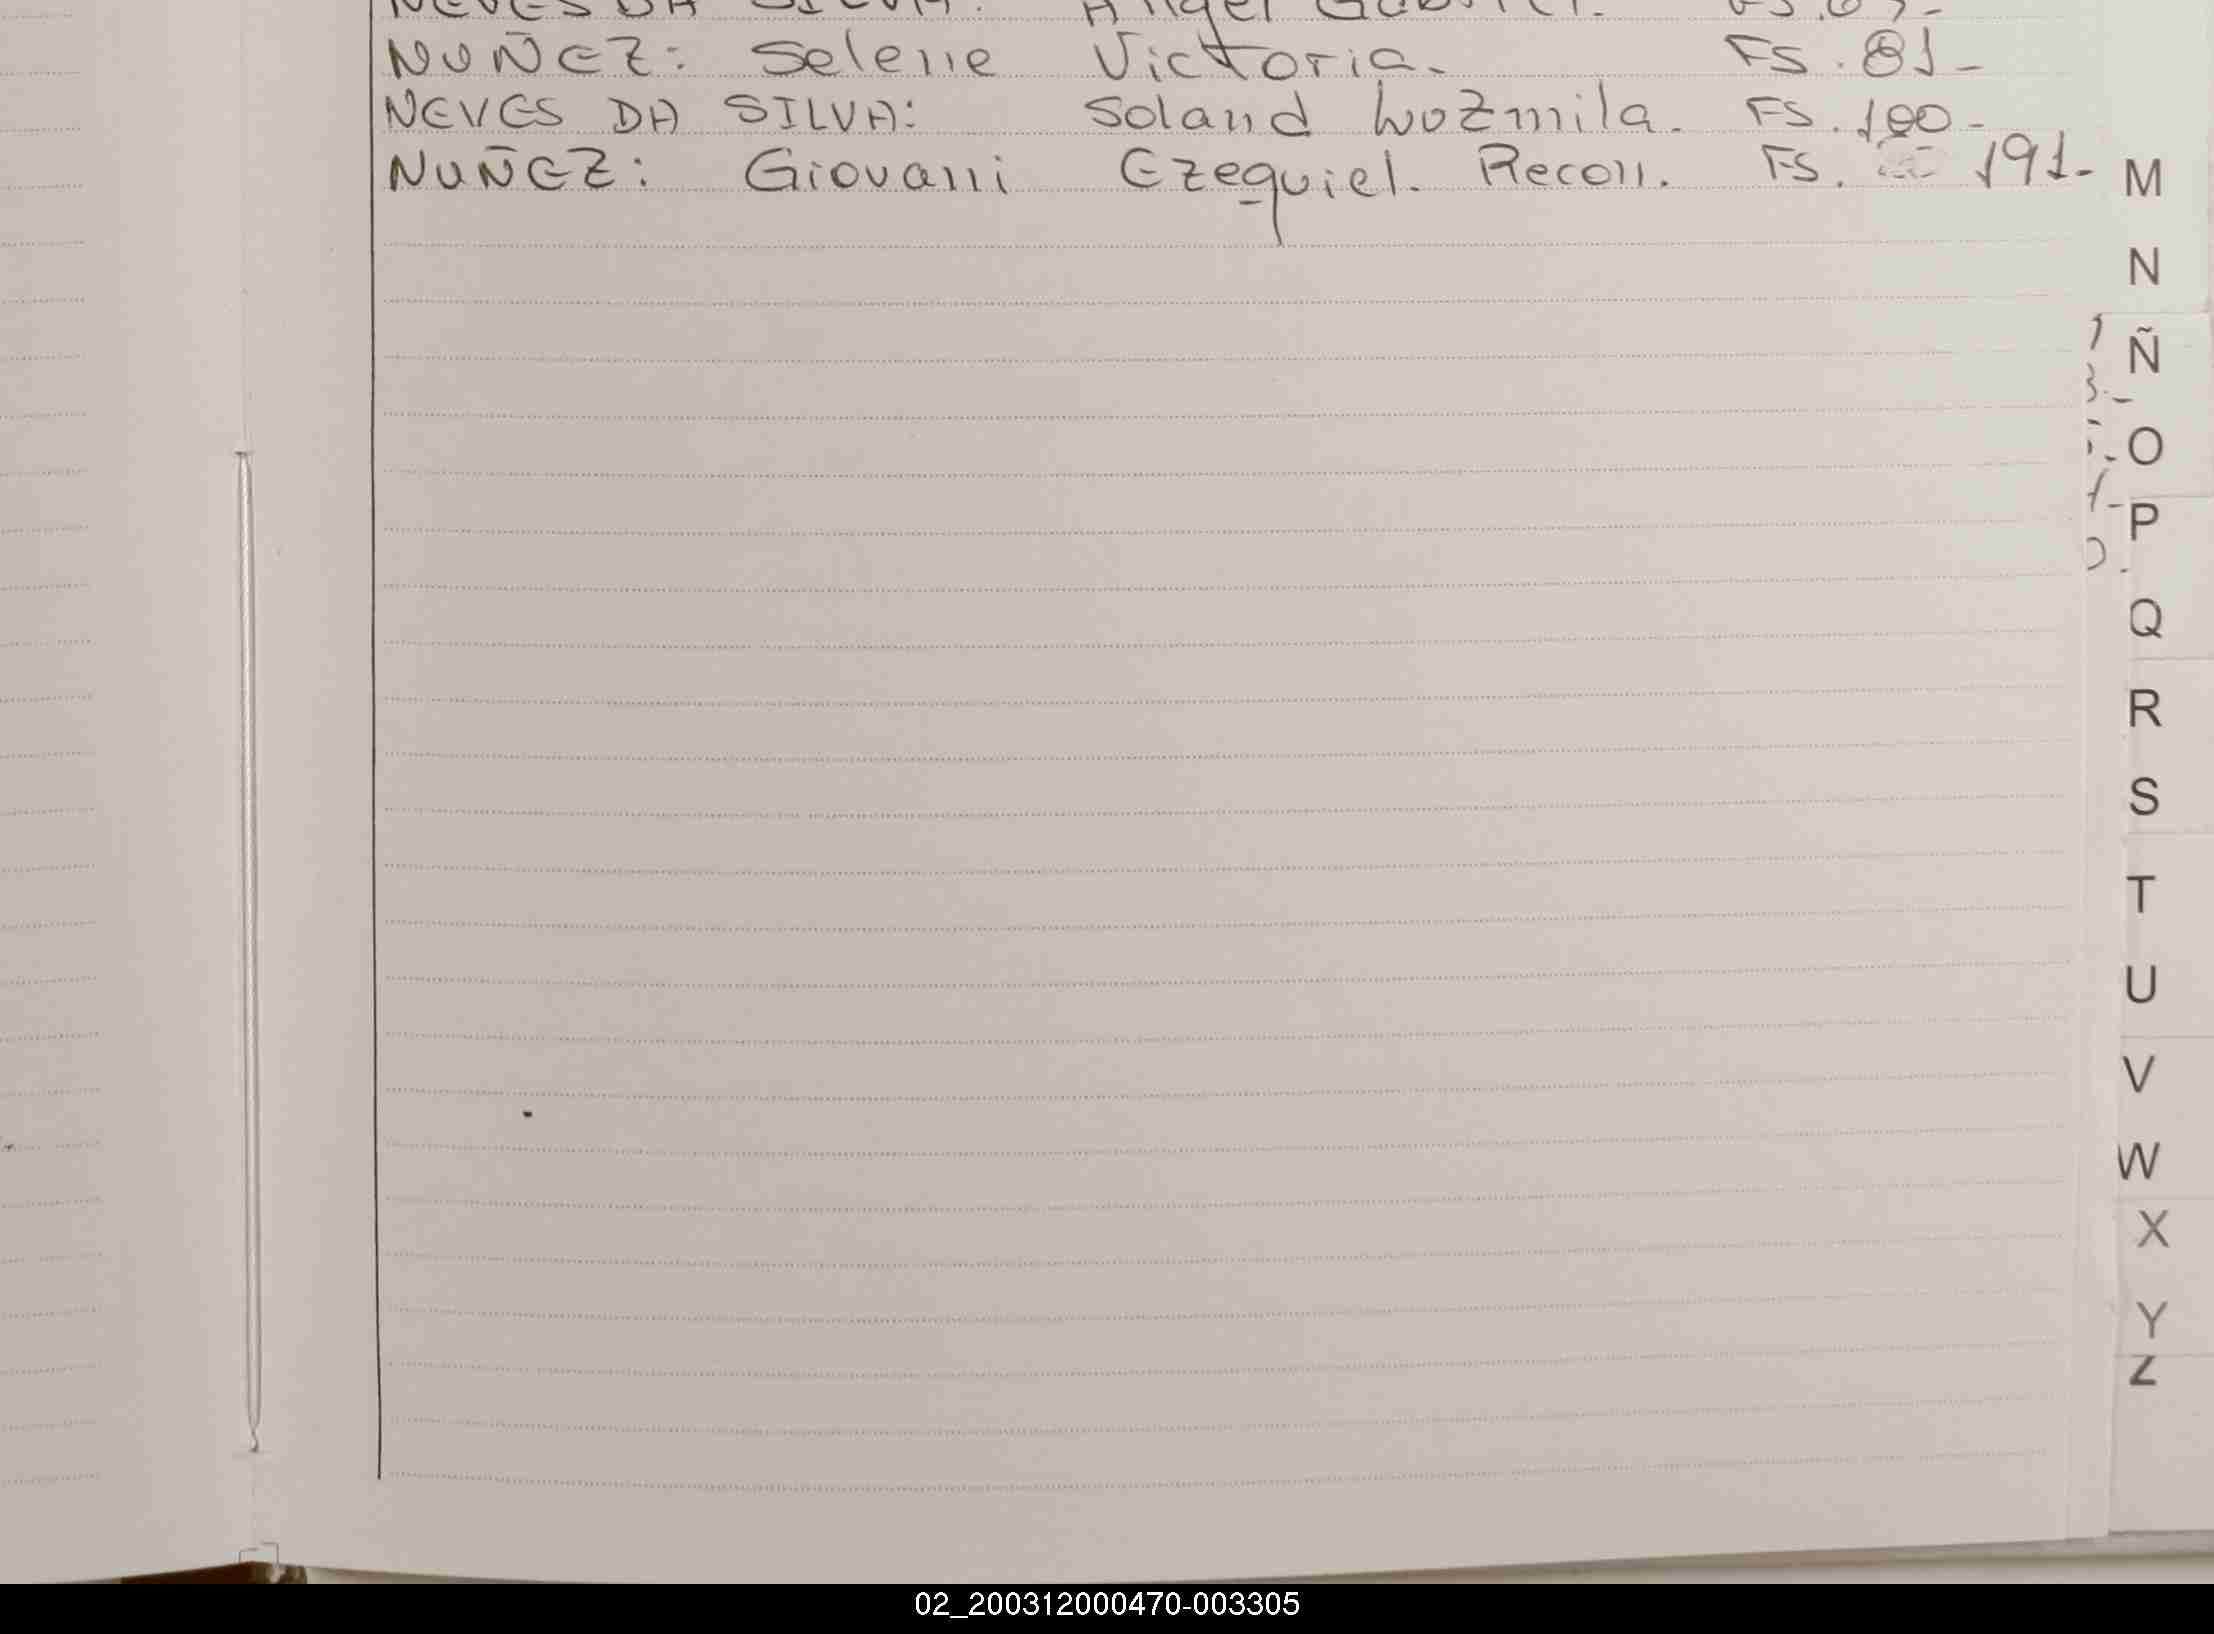 NEVES DA SILVA: Angel Gabriel. FS.
NUÑEZ: Selene Victoria. FS. 81-
NEVES DA SILVA: Soland Luzmila. FS. 100-
NUÑEZ: Giovanni Ezequiel. Recon. FS. 191-
M
N
Ñ
O
P
Q
R
S
T
U
V
W
X
Y
Z
02_200312000470-003305